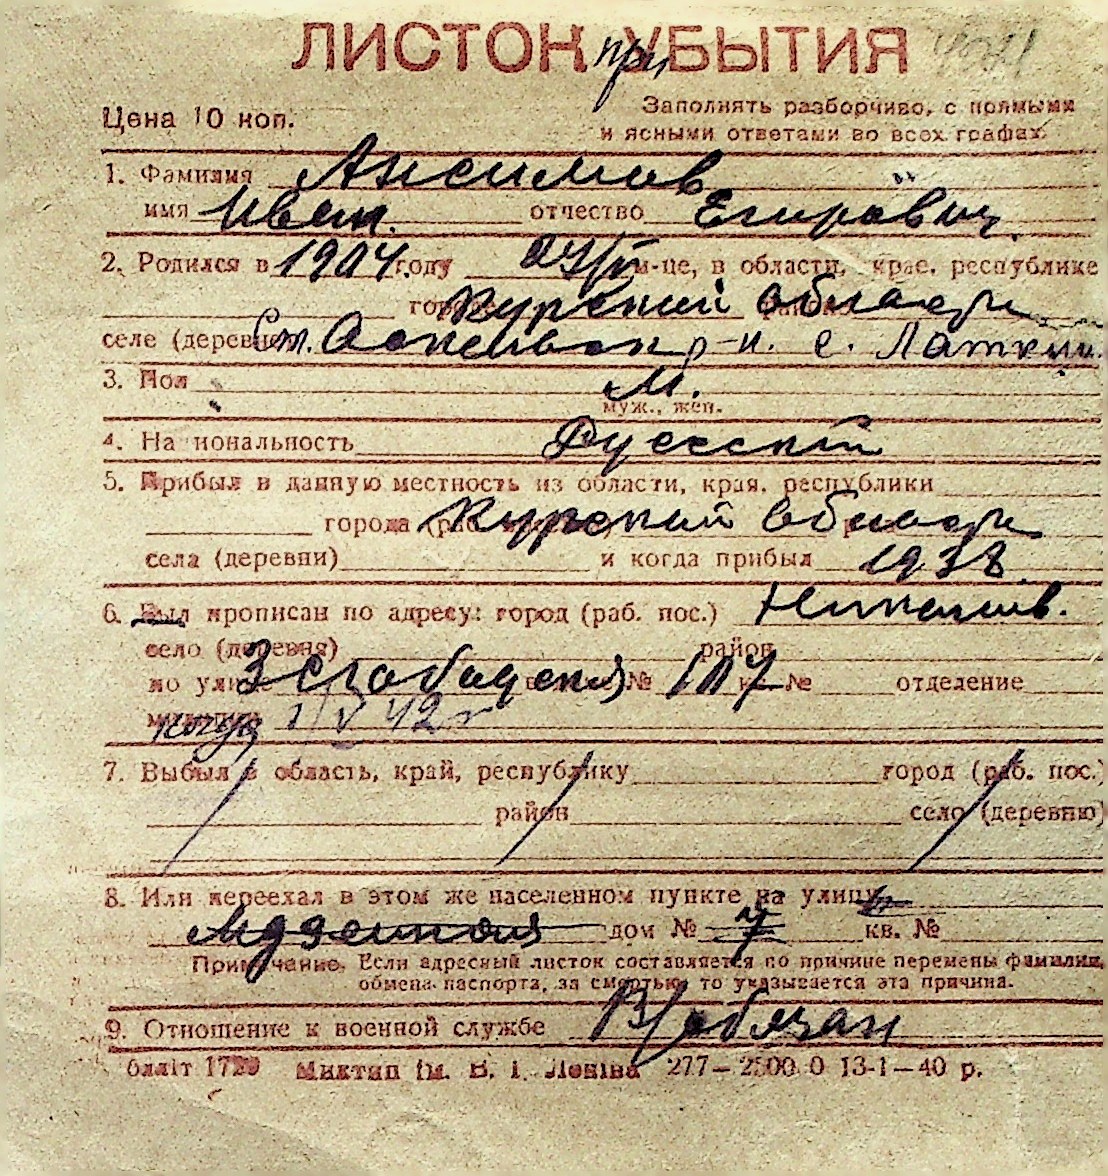 ЛИСТОК УБЫТИЯ
при
Цена 10 коп.
Заполнять разборчиво, с прямыми
и ясными ответами во всех графах
1. Фамилия Ансимов
имя Иван. отчество Егирович.
2. Родился в 1904 году м-це, в области, крае, республике
Курский области
селе (деревне) Ст. р-н. с.
3. Пол М.
муж., жен.
4. Национальность Русский
5. Прибыл в данную местность из области, края, республики
города Курский области
села (деревни) и когда прибыл 1938
6. Был прописан по адресу: город (раб. пос.) Николаев.
село (деревня) район
по улице 3 Слободская № 107 № отделение
когда 1/V 42 г
7. Выбыл в область, край, республику город (раб. пос.)
район село (деревню)
8. Или переехал в этом же населенном пункте на улицу
дом № 7 кв. №
Примечание. Если адресный листок составляется по причине перемены фамилии,
обмена паспорта, за смертью, то указывается эта причина.
9. Отношение к военной службе В/обязан
Миктип ім. В. І. Леніна 277—2500 0 13-1—40 р.